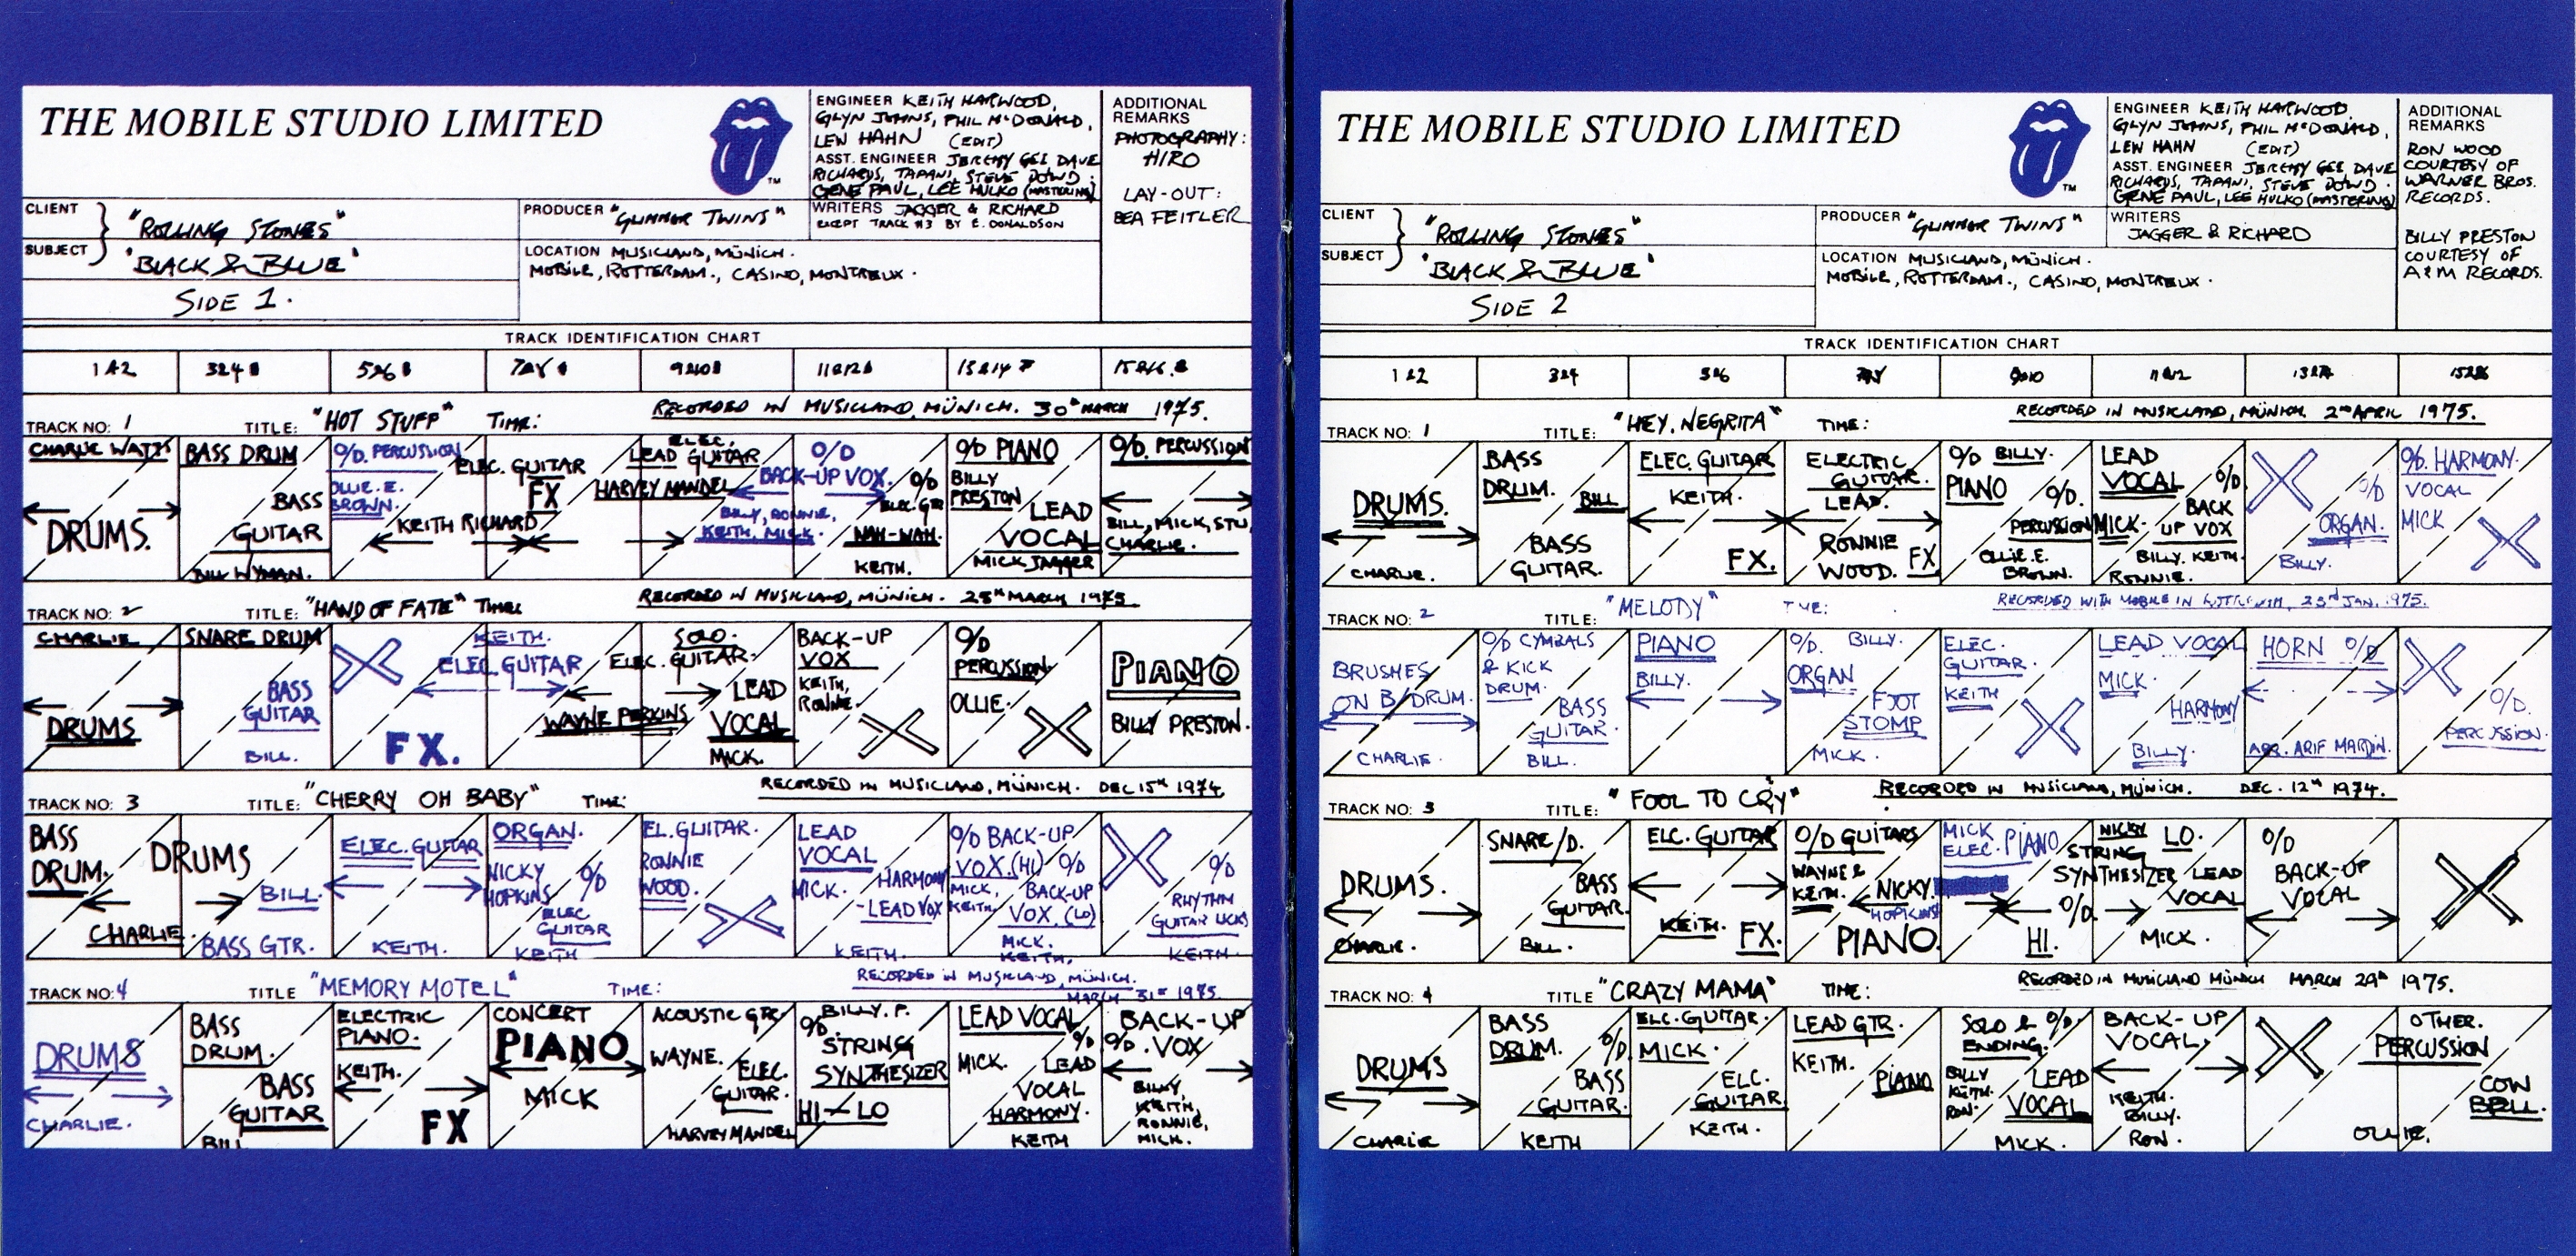 THE MOBILE STUDIO LIMITED
TM
ENGINEER KEITH HARWOOD,
GLYN JOHNS, PHIL McDONALD,
LEW HAHN (EDIT)
ASST. ENGINEER JEREMY GEE DAVE
RICHARDS, TAPANI, STEVE DOWD.
GENE PAUL, LEE HULKO (MASTERING)
ADDITIONAL
REMARKS
PHOTOGRAPHY:
HIRO
LAY-OUT:
BEA FEITLER
CLIENT
"ROLLING STONES"
SUBJECT
'BLACK & BLUE'
SIDE 1.
PRODUCER "GLIMMER TWINS"
WRITERS JAGGER & RICHARD
EXCEPT TRACK #3 BY E. DONALDSON
LOCATION MUSICLAND, MÜNICH.
MOBILE, ROTTERDAM., CASINO, MONTREUX.
TRACK IDENTIFICATION CHART
1&2 3&4 5&6 7&8 9&10 11&12 13&14 15&16
TRACK NO: 1 TITLE: "HOT STUFF" TIME: RECORDED IN MUSICLAND, MÜNICH. 30th MARCH 1975.
CHARLIE WATTS
DRUMS.
BASS DRUM
BASS
GUITAR
BILL WYMAN.
O/D. PERCUSSION
OLLIE. E.
BROWN.
ELEC. GUITAR
FX
KEITH RICHARD
ELEC.
LEAD GUITAR
HARVEY MANDEL
O/D
BACK-UP VOX.
BILLY, RONNIE,
KEITH, MICK.
O/D
ELEC. GTR
WAH-WAH.
KEITH.
O/D PIANO
BILLY
PRESTON
LEAD
VOCAL
MICK JAGGER
O/D. PERCUSSION
BILL, MICK, STU,
CHARLIE.
TRACK NO: 2 TITLE: "HAND OF FATE" TIME: RECORDED IN MUSICLAND, MÜNICH. 25th MARCH 1975
CHARLIE
DRUMS
SNARE DRUM
BASS
GUITAR
BILL.
KEITH.
ELEC. GUITAR
FX.
SOLO.
ELEC. GUITAR.
WAYNE PERKINS
LEAD
VOCAL
MICK.
BACK-UP
VOX
KEITH,
RONNIE.
O/D
PERCUSSION.
OLLIE.
PIANO
BILLY PRESTON.
TRACK NO: 3 TITLE: "CHERRY OH BABY" TIME: RECORDED IN MUSICLAND, MÜNICH. DEC 15th 1974
BASS
DRUM.
DRUMS
CHARLIE
BILL.
BASS GTR.
ELEC. GUITAR
KEITH.
ORGAN.
NICKY
HOPKINS
O/D
ELEC
GUITAR
KEITH
EL. GUITAR.
RONNIE
WOOD.
LEAD
VOCAL
MICK.
HARMONY
-LEAD VOX
KEITH.
O/D BACK-UP
VOX. (HI)
MICK,
KEITH.
O/D
BACK-UP
VOX. (LO)
MICK.
KEITH.
O/D
RHYTHM
GUITAR LICKS
KEITH.
TRACK NO: 4 TITLE "MEMORY MOTEL" TIME: RECORDED IN MUSICLAND, MÜNICH.
MARCH 31st 1975.
DRUMS
CHARLIE.
BASS
DRUM.
BASS
GUITAR
BILL
ELECTRIC
PIANO.
KEITH.
FX
CONCERT
PIANO
MICK
ACOUSTIC GTR
WAYNE.
ELEC.
GUITAR.
HARVEY MANDEL
BILLY. P.
O/D.
STRING
SYNTHESIZER
HI - LO
LEAD VOCAL
MICK.
O/D
LEAD
VOCAL
HARMONY.
KEITH
BACK-UP
O/D. VOX
BILLY,
KEITH,
RONNIE,
MICK.
THE MOBILE STUDIO LIMITED
TM
ENGINEER KEITH HARWOOD,
GLYN JOHNS, PHIL McDONALD,
LEW HAHN (EDIT)
ASST. ENGINEER JEREMY GEE DAVE
RICHARDS, TAPANI, STEVE DOWD.
GENE PAUL, LEE HULKO (MASTERING)
ADDITIONAL
REMARKS
RON WOOD
COURTESY OF
WARNER BROS.
RECORDS.
BILLY PRESTON
COURTESY OF
A & M RECORDS.
CLIENT
"ROLLING STONES"
SUBJECT
'BLACK & BLUE'
SIDE 2
PRODUCER "GLIMMER TWINS"
WRITERS
JAGGER & RICHARD
LOCATION MUSICLAND, MÜNICH.
MOBILE, ROTTERDAM., CASINO, MONTREUX.
TRACK IDENTIFICATION CHART
1&2 3&4 5&6 7&8 9&10 11&12 13&14 15&16
TRACK NO: 1 TITLE: "HEY, NEGRITA" TIME: RECORDED IN MUSICLAND, MÜNICH 2nd APRIL 1975.
DRUMS.
CHARLIE.
BASS
DRUM.
BILL
BASS
GUITAR.
ELEC. GUITAR
KEITH.
FX.
ELECTRIC
GUITAR.
LEAD.
RONNIE
WOOD.
FX
O/D BILLY.
PIANO
O/D.
PERCUSSION
OLLIE. E.
BROWN.
LEAD
VOCAL
MICK.
O/D
BACK
UP VOX
BILLY. KEITH.
RONNIE.
O/D
ORGAN.
BILLY.
O/D. HARMONY.
VOCAL
MICK
TRACK NO: 2 TITLE: "MELODY" TIME: RECORDED WITH MOBILE IN ROTTERDAM, 23rd JAN. 1975.
BRUSHES
ON B/DRUM.
CHARLIE.
O/D CYMBALS
& KICK
DRUM.
BASS
GUITAR.
BILL.
PIANO
BILLY.
O/D. BILLY.
ORGAN
FOOT
STOMP
MICK.
ELEC.
GUITAR.
KEITH
LEAD VOCAL
MICK.
HARMONY
BILLY.
HORN O/D
ARR. ARIF MARDIN.
O/D.
PERCUSSION.
TRACK NO: 3 TITLE: "FOOL TO CRY" RECORDED IN MUSICLAND, MÜNICH. DEC. 12th 1974.
DRUMS.
CHARLIE.
SNARE/D.
BASS
GUITAR.
BILL.
ELC. GUITAR
KEITH.
FX.
O/D GUITARS
WAYNE &
KEITH.
NICKY
HOPKINS
PIANO.
MICK
ELEC. PIANO
NICKY LO.
STRING
SYNTHESIZER
O/D
HI.
LEAD
VOCAL
MICK.
O/D
BACK-UP
VOCAL
TRACK NO: 4 TITLE "CRAZY MAMA" TIME: RECORDED IN MUSICLAND MÜNICH MARCH 29th 1975.
DRUMS
CHARLIE
BASS
DRUM.
O/D
BASS
GUITAR.
KEITH
ELC. GUITAR.
MICK.
ELC.
GUITAR.
KEITH.
LEAD GTR.
KEITH.
PIANO
SOLO & O/D.
ENDING.
BILLY
KEITH.
RON.
LEAD
VOCAL
MICK.
BACK-UP
VOCAL.
KEITH.
BILLY.
RON.
OTHER.
PERCUSSION
COW
BELL.
OLLIE.